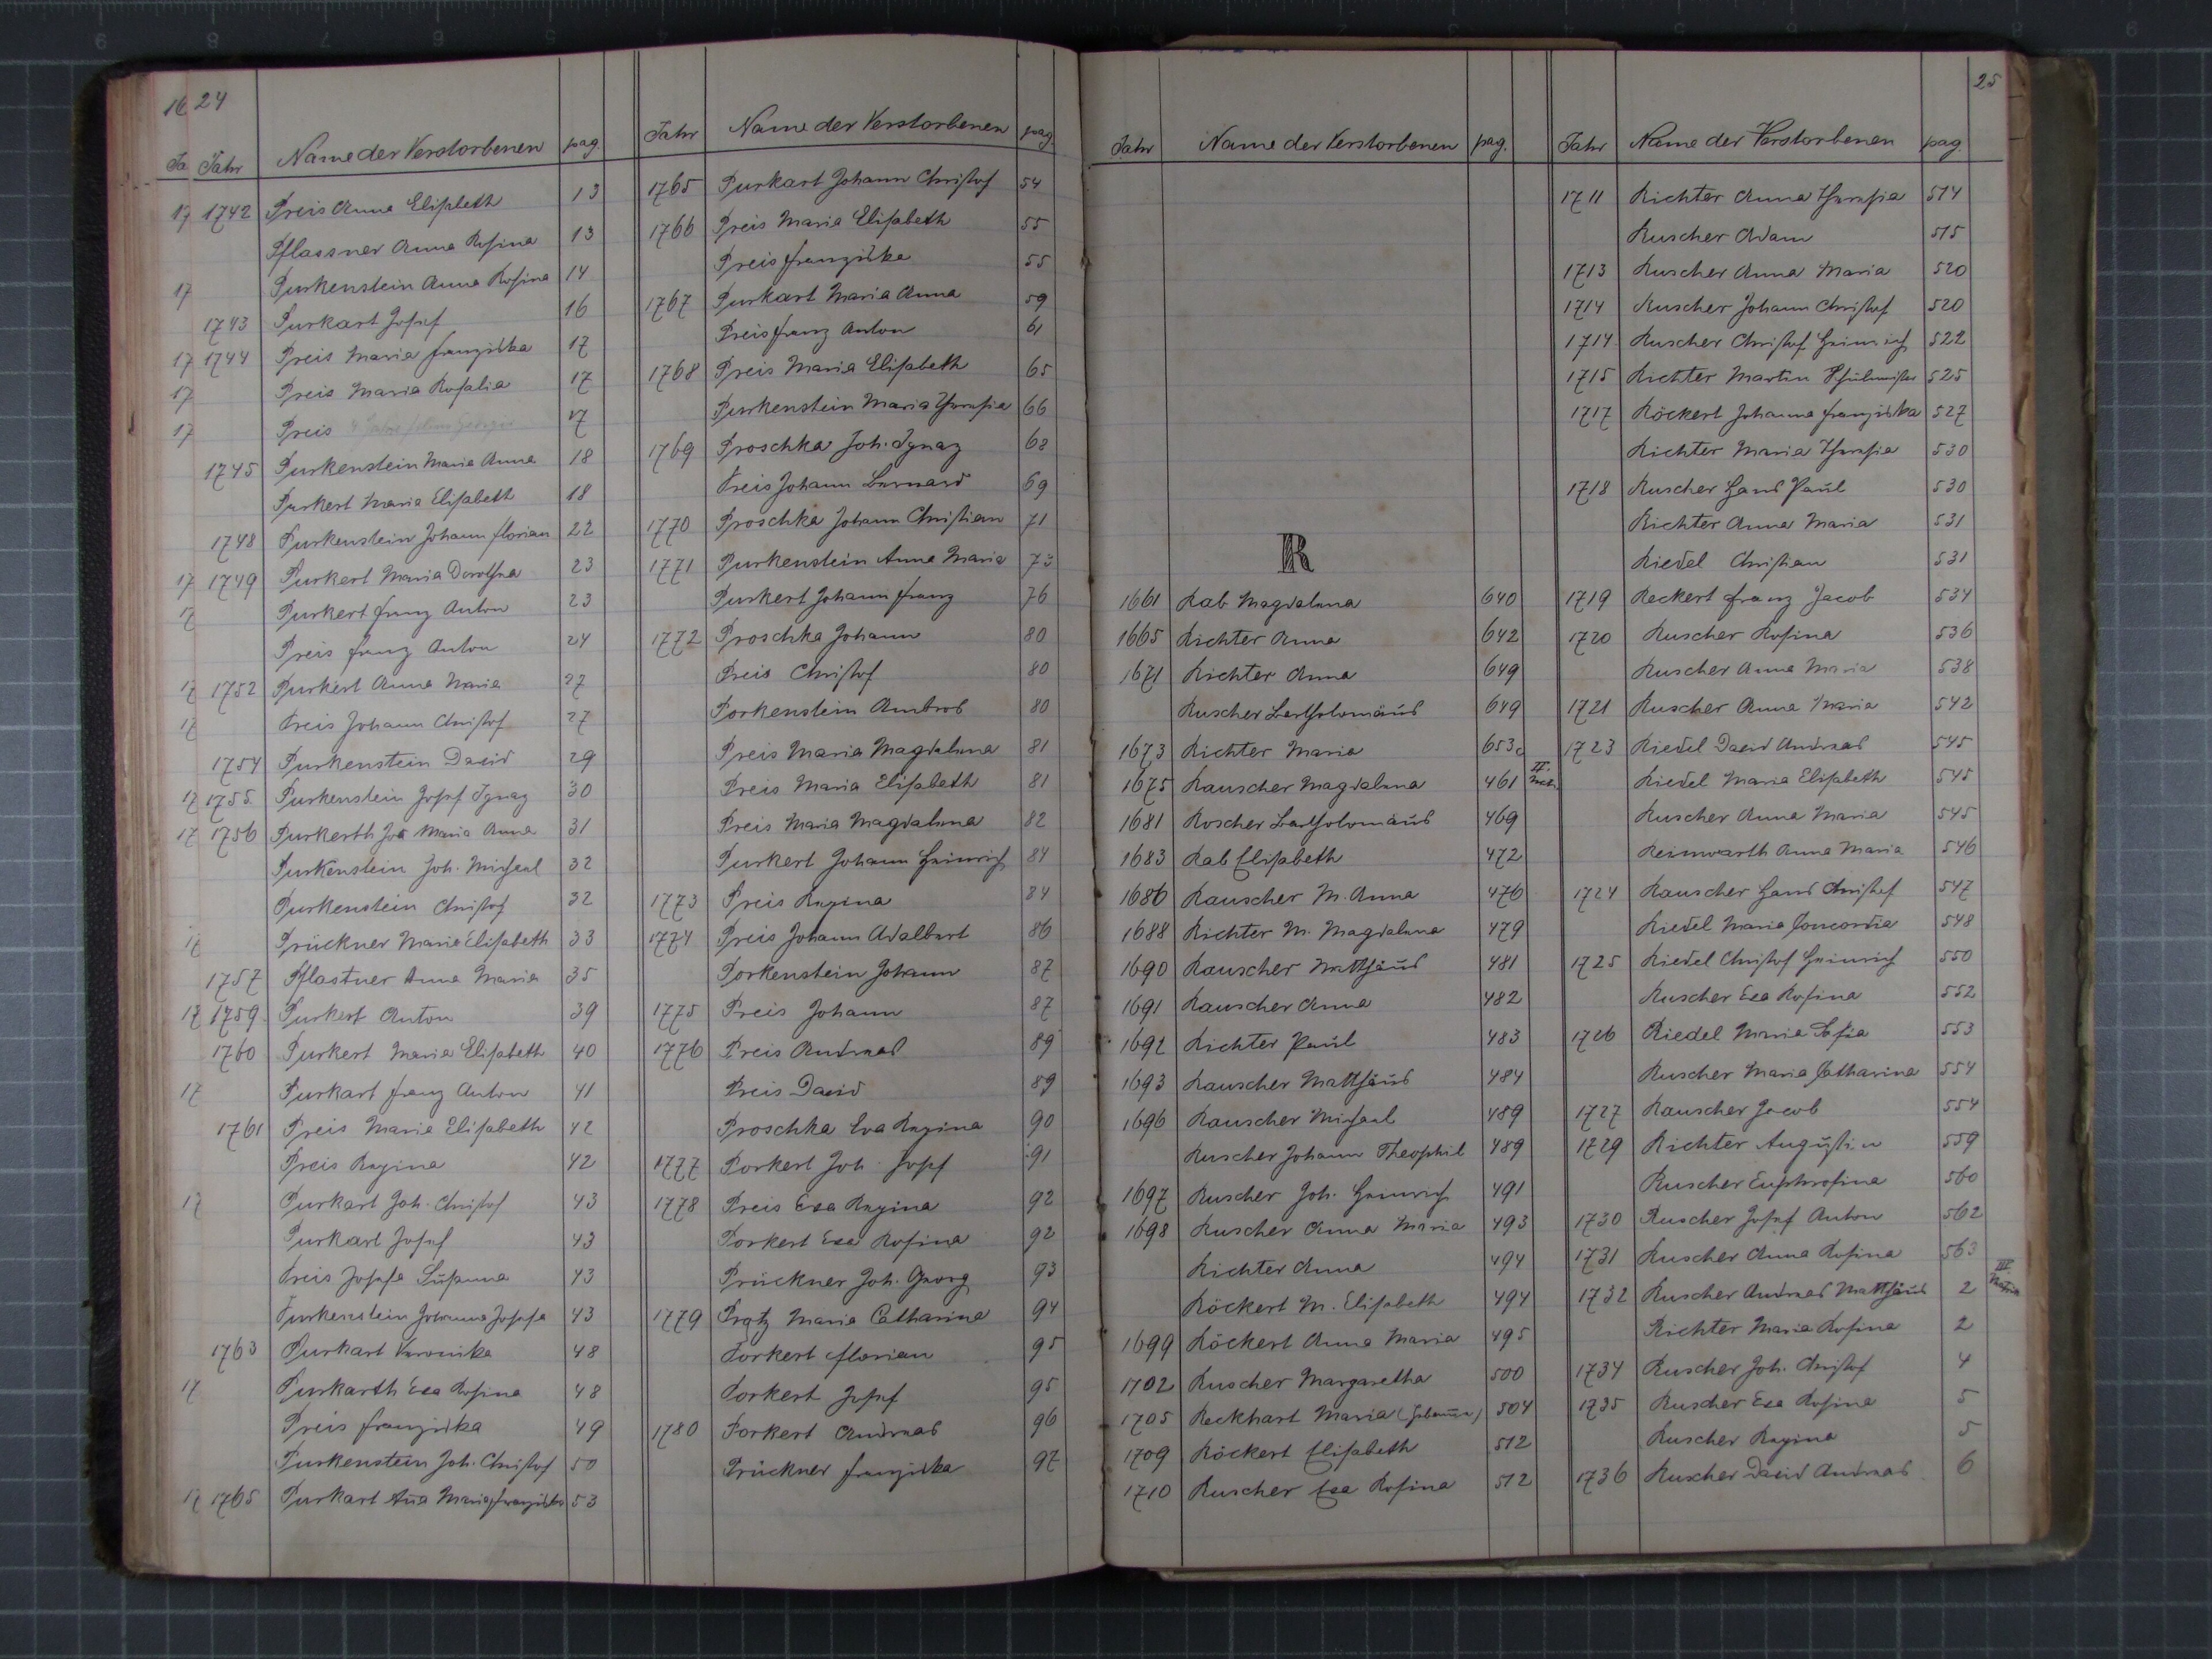 24
Jahr Name der Verstorbenen pag.
1742 Preis Anna Elisabeth 13
Pflassner Anna Rosina 13
Purkenstein Anna Rosina 14
1743 Purkart Josef 16
1744 Preis Maria Franziska 17
Preis Maria Rosalia 17
Preis 17
1745 Purkenstein Maria Anna 18
Purkert Maria Elisabeth 18
1748 Purkenstein Johann Florian 22
1749 Purkert Maria Dorothea 23
Purkert Franz Anton 23
Preis Franz Anton 24
1752 Purkert Anna Maria 27
Preis Johann Christof 27
1754 Purkenstein David 29
1755 Purkenstein Josef Ignaz 30
1756 Purkerth Maria Anna 31
Purkenstein Joh. Michael 32
Purkenstein Christof 32
Prückner Maria Elisabeth 33
1757 Pflastner Anna Maria 35
1759 Purkert Anton 39
1760 Purkert Maria Elisabeth 40
Purkart Franz Anton 41
1761 Preis Maria Elisabeth 42
Preis Regina 42
Purkart Joh. Christof 43
Purkart Josef 43
Preis Josefa Susanna 43
Purkenstein Johanna Josefa 43
1763 Purkart Veronika 48
Purkarth Eva Rosina 48
Preis Franziska 49
Purkenstein Joh. Christof 50
1765 Purkart Anna Maria Franziska 53
Jahr Name der Verstorbenen pag.
1765 Purkart Johann Christof 54
1766 Preis Maria Elisabeth 55
Preis Franziska 55
1767 Purkart Maria Anna 59
Preis Franz Anton 61
1768 Preis Maria Elisabeth 65
Purkenstein Maria Theresia 66
1769 Proschka Joh. Ignaz 68
Preis Johann Bernard 69
1770 Proschka Johann Christian 71
1771 Purkenstein Anna Maria 73
Purkert Johann Franz 76
1772 Proschka Johann 80
Preis Christof 80
Porkenstein Ambros 80
Preis Maria Magdalena 81
Preis Maria Elisabeth 81
Preis Maria Magdalena 82
Purkert Johann Heinrich 84
1773 Preis Regina 84
1774 Preis Johann Adalbert 86
Porkenstein Johann 87
1775 Preis Johann 87
1776 Preis Andreas 89
Preis David 89
Proschka Eva Regina 90
1777 Porkert Joh. Josef 91
1778 Preis Eva Regina 92
Porkert Eva Rosina 92
Prückner Joh. Georg 93
1779 Protz Maria Catharina 94
Porkert Florian 95
Porkert Josef 95
1780 Porkert Andreas 96
Prückner Franziska 97
Jahr Name der Verstorbenen pag.
R
1661 Rab Magdalena 640
1665 Richter Anna 642
1671 Richter Anna 649
Ruscher Bartholomäus 649
1673 Richter Maria 653c
1675 Rauscher Magdalena 461 II.
1681 Roscher Bartholomäus 469
1683 Rab Elisabeth 472
1686 Rauscher M. Anna 476
1688 Richter M. Magdalena 479
1690 Rauscher Matthäus 481
1691 Rauscher Anna 482
1692 Richter Paul 483
1693 Rauscher Matthäus 484
1696 Rauscher Michael 489
Ruscher Johann Theophil 489
1697 Ruscher Joh. Heinrich 491
1698 Ruscher Anna Maria 493
Richter Anna 494
Röckert M. Elisabeth 494
1699 Röckert Anna Maria 495
1702 Ruscher Margaretha 500
1705 Reckhart Maria 504
1709 Röckert Elisabeth 512
1710 Ruscher Eva Rosina 512
25
Jahr Name der Verstorbenen pag
1711 Richter Anna Theresia 514
Ruscher Adam 515
1713 Ruscher Anna Maria 520
1714 Ruscher Johann Christof 520
1714 Ruscher Christof Heinrich 522
1715 Richter Martin Schulmeister 525
1717 Röckert Johanna Franziska 527
Richter Maria Theresia 530
1718 Ruscher Hans Paul 530
Richter Anna Maria 531
Riedel Christian 531
1719 Reckert Franz Jacob 534
1720 Ruscher Rosina 536
Ruscher Anna Maria 538
1721 Ruscher Anna Maria 542
1723 Riedel David Andreas 545
Riedel Maria Elisabeth 545
Ruscher Anna Maria 545
Reimwarth Anna Maria 546
1724 Rauscher Hans Christof 547
Riedel Maria Concordia 548
1725 Riedel Christof Heinrich 550
Ruscher Eva Rosina 552
1726 Riedel Maria Sofia 553
Ruscher Maria Catharina 554
1727 Rauscher Jacob 554
1729 Richter Augustin 559
Ruscher Euphrosina 560
1730 Ruscher Josef Anton 562
1731 Ruscher Anna Rosina 563
1732 Ruscher Andreas Matthäus 2 III.
Richter Maria Rosina 2
1734 Ruscher Joh. Christof 4
1735 Ruscher Eva Rosina 5
Ruscher Regina 5
1736 Ruscher David Andreas 6